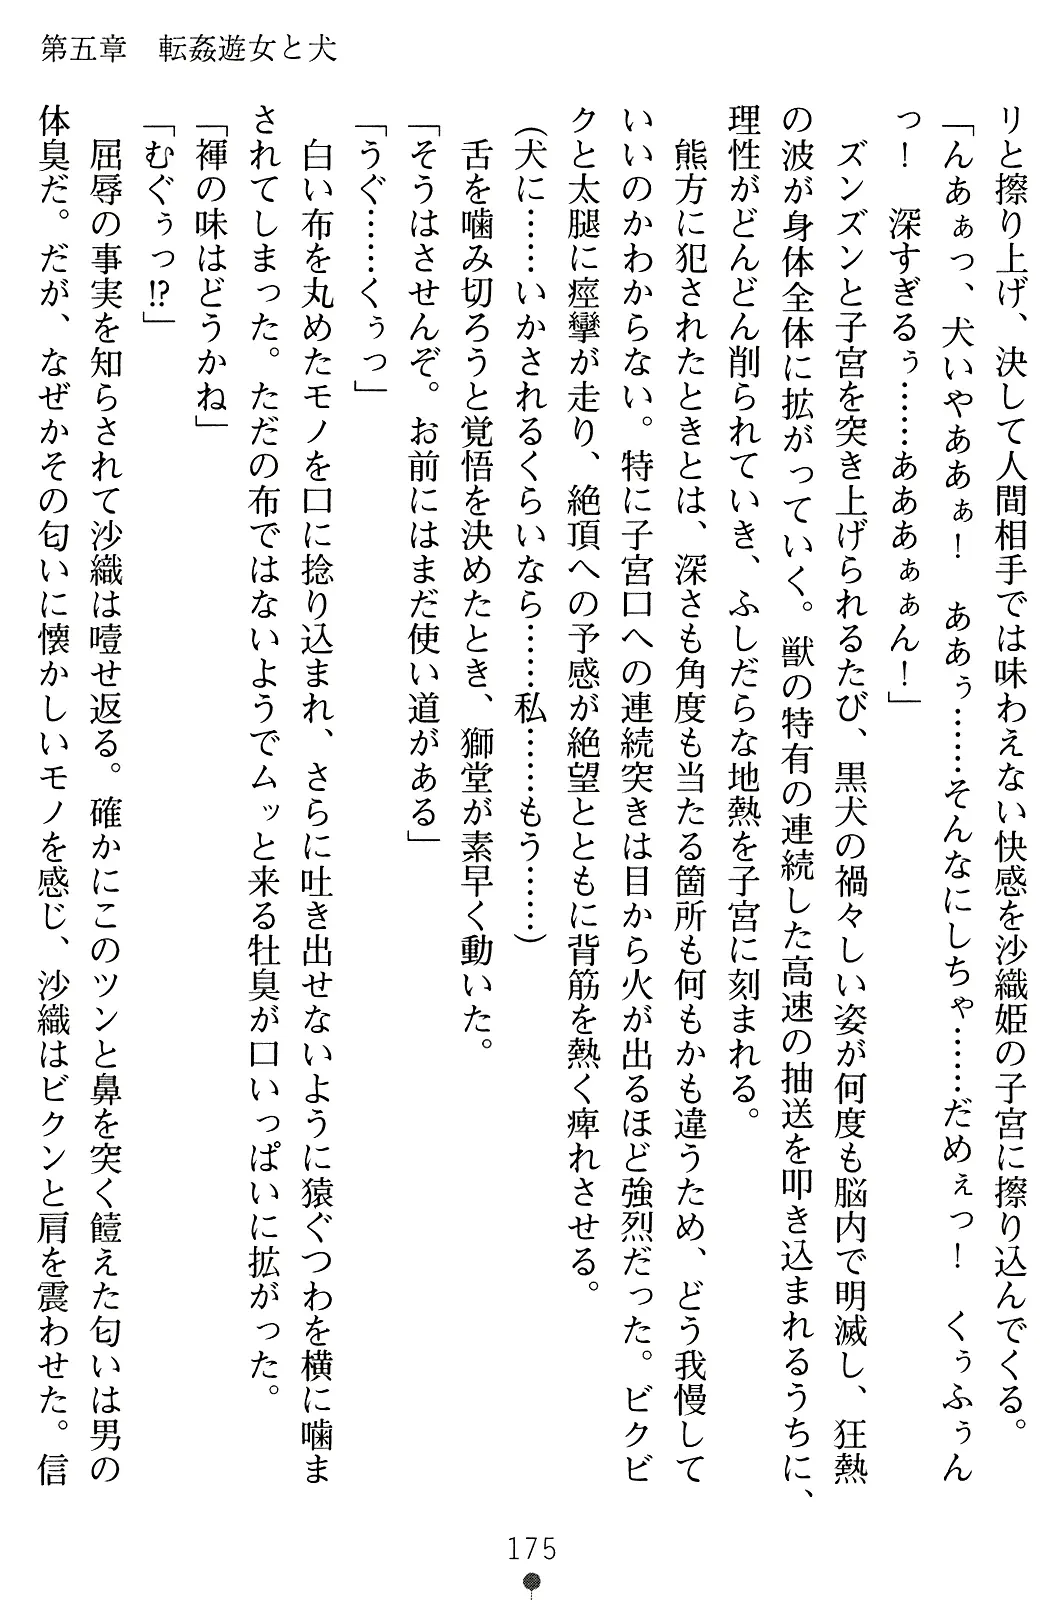 第五章　転姦遊女と犬
リと擦り上げ、決して人間相手では味わえない快感を沙織姫の子宮に擦り込んでくる。
「んあぁっ、犬いやああぁ！　ああぅ……そんなにしちゃ……だめぇっ！　くぅふぅん
っ！　深すぎるぅ……ああぁぁん！」
　ズンズンと子宮を突き上げられるたび、黒犬の禍々しい姿が何度も脳内で明滅し、狂熱
の波が身体全体に拡がっていく。獣の特有の連続した高速の抽送を叩き込まれるうちに、
理性がどんどん削られていき、ふしだらな地熱を子宮に刻まれる。
　熊方に犯されたときとは、深さも角度も当たる箇所も何もかも違うため、どう我慢して
いいのかわからない。特に子宮口への連続突きは目から火が出るほど強烈だった。ビクビ
クと太腿に痙攣が走り、絶頂への予感が絶望とともに背筋を熱く痺れさせる。
（犬に……いかされるくらいなら……私……もう……）
　舌を噛み切ろうと覚悟を決めたとき、獅堂が素早く動いた。
「そうはさせんぞ。お前にはまだ使い道がある」
「うぐ……くぅっ」
　白い布を丸めたモノを口に捻り込まれ、さらに吐き出せないように猿ぐつわを横に噛ま
されてしまった。ただの布ではないようでムッと来る牡臭が口いっぱいに拡がった。
「褌の味はどうかね」
「むぐぅっ!?」
　屈辱の事実を知らされて沙織は噎せ返る。確かにこのツンと鼻を突く饐えた匂いは男の
体臭だ。だが、なぜかその匂いに懐かしいモノを感じ、沙織はビクンと肩を震わせた。信
175